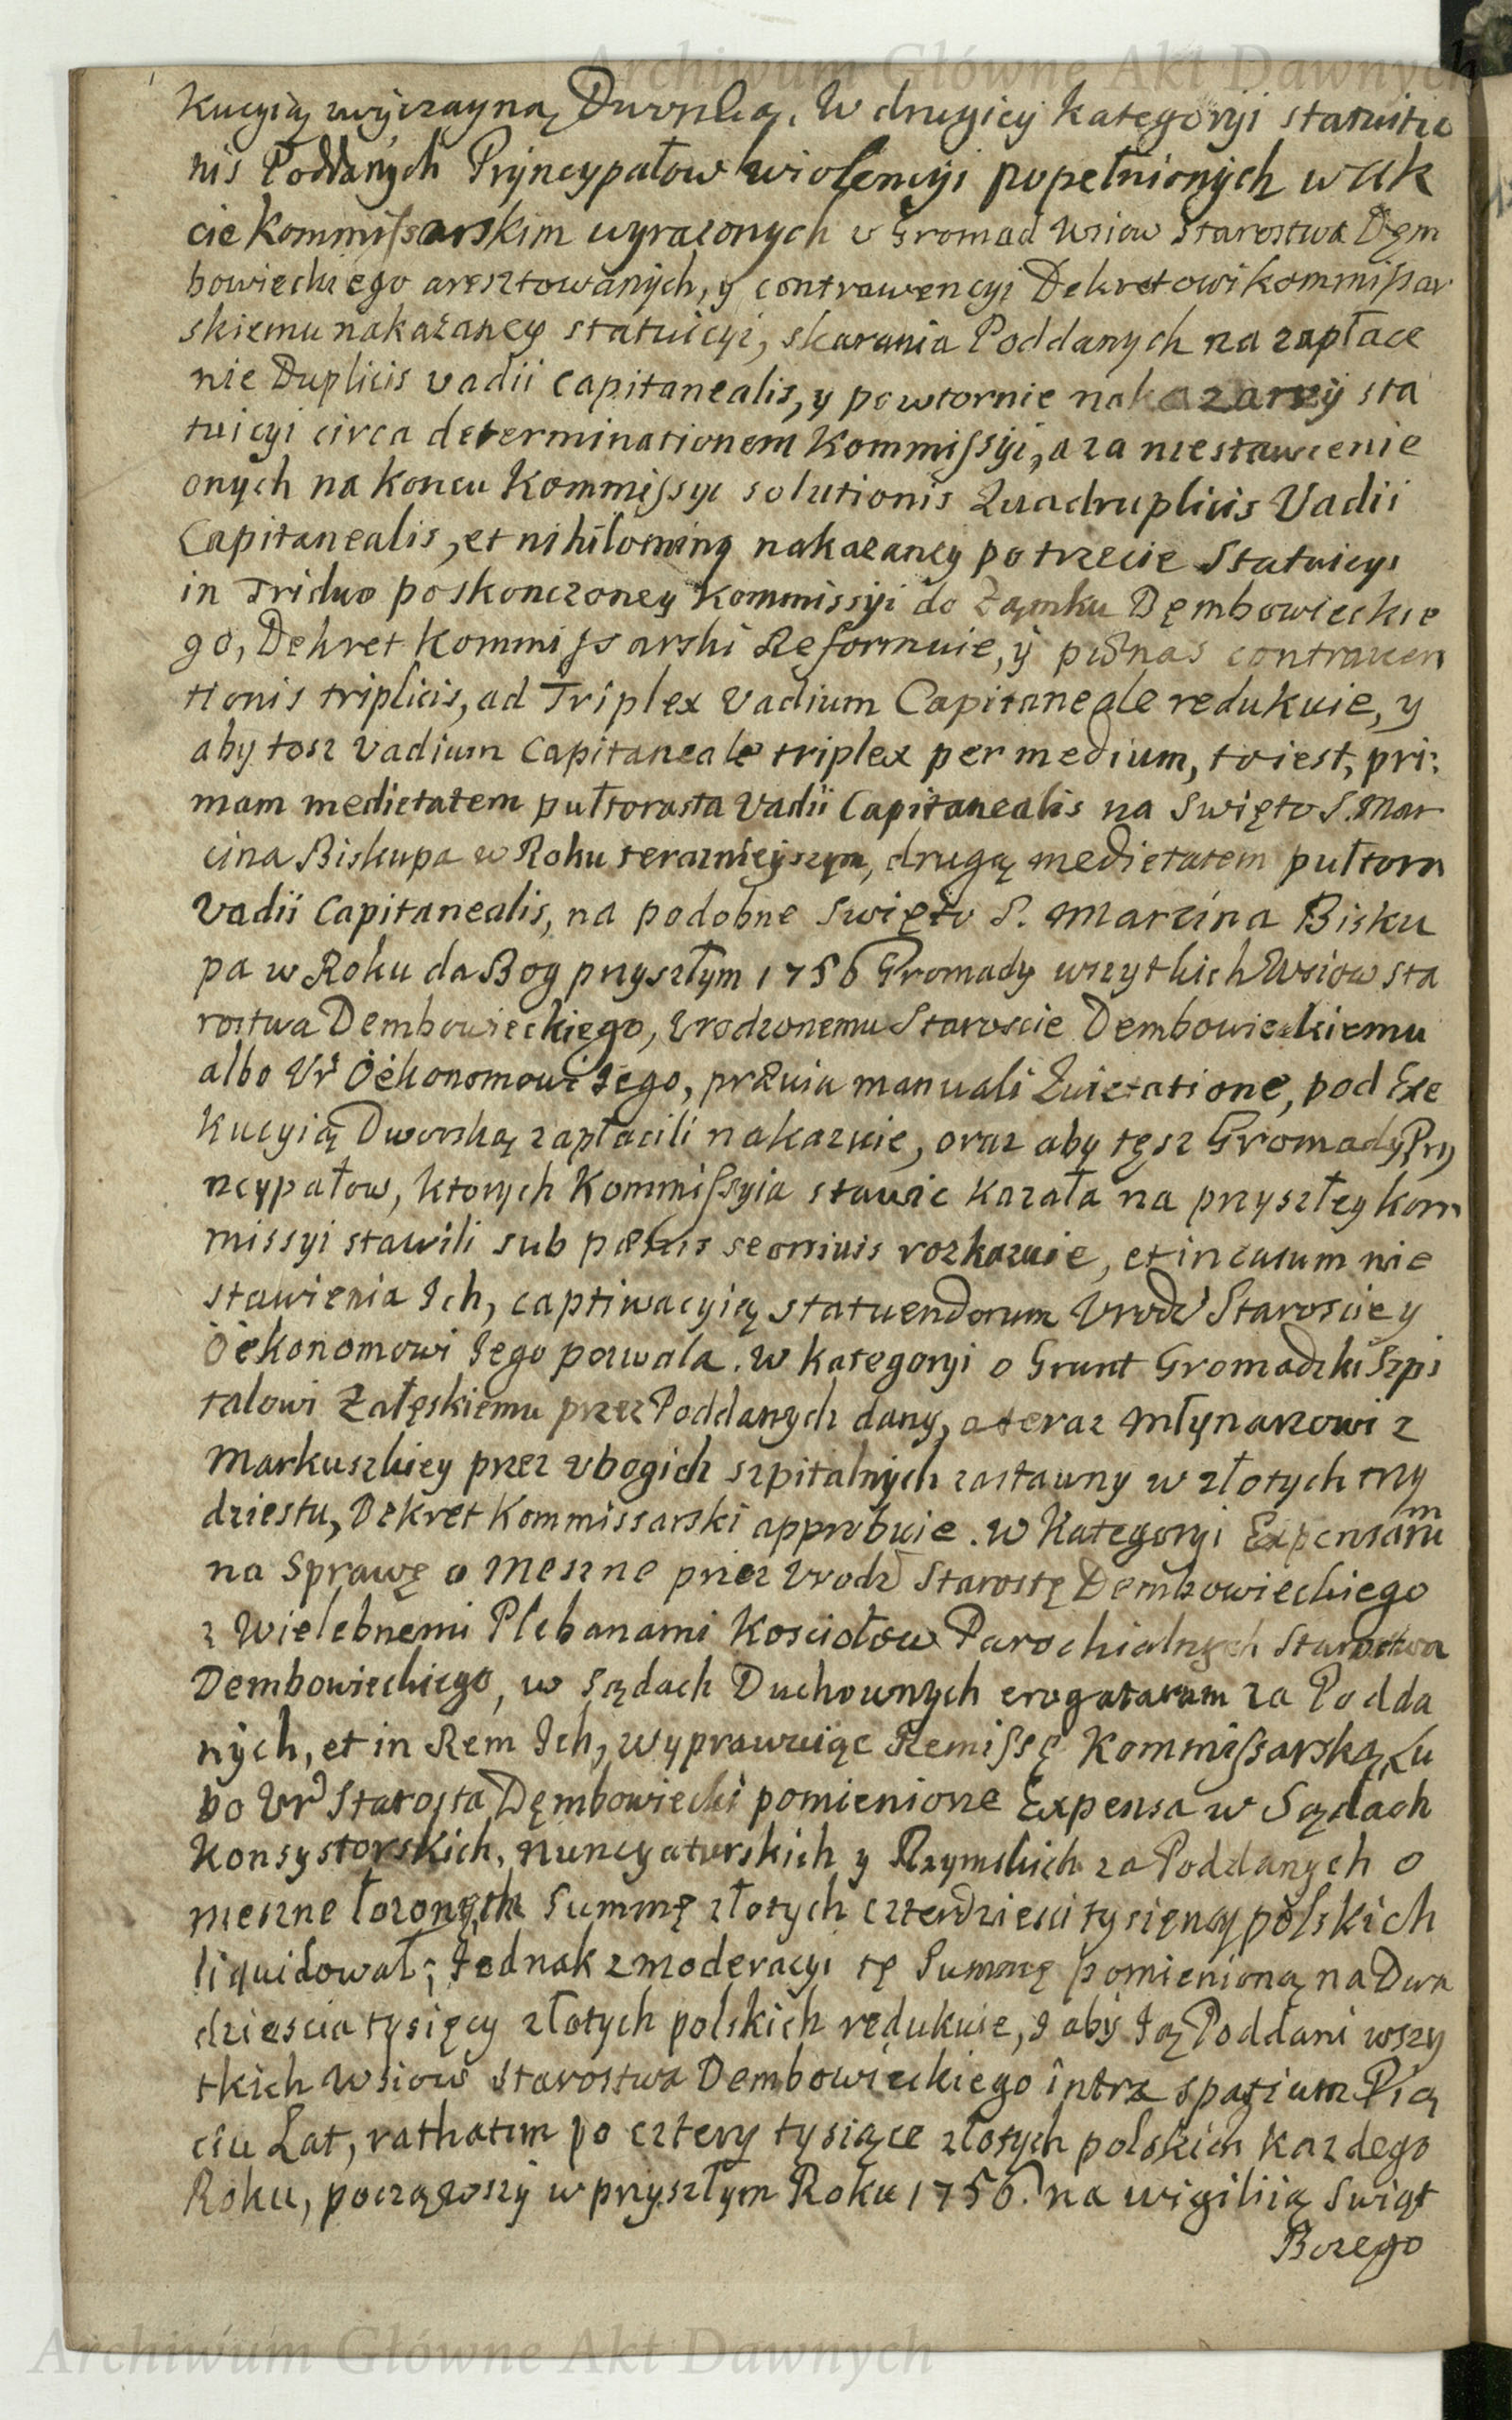 Archiwum Główne Akt Dawnych
kucyią zwyczayną Dworską. W drugiey kategoryi statuitio
nis Poddanych Pryncypałow wiolencyi popełnionych w Ak
cie Kommissarskim wyrazonych z Gromad Wsiow Starostwa Dęm
bowieckiego aresztowanych, y contrawencyi Dekretowi kommissar
skiemu nakazaney statuicyi, skarania Poddanych na zapłace
nie Duplicis vadii Capitanealis, y powtornie nakazaney sta
tuicyi circa determinationem Kommissyi, a za niestawienie
onych na koncu Kommissyi solutionis Quadruplicis Vadii
Capitanealis, et nihilominq nakazaney po trzecie Statuicyi
in Triduo poskonczoney Kommissyi do Zamku Dęmbowieckie
go, Dekret Kommissarski Reformuie, y pænas contraven
tionis triplicis, ad Triplex Vadium Capitaneale redukuie, y
aby tosz Vadium Capitaneale triplex per medium, to iest, pri:
mam medietatem pułtorasta Vadii Capitanealis na Swięto S. Mar
cina Biskupa w Roku teraznieyszym, drugą medietatem pułtora
Vadii Capitanealis, na podobne Swięto S. Marcina Bisku
pa w Roku da Bog przyszłym 1756 Gromady wszytkich Wsiow sta
rostwa Dembowieckiego, Urodzonemu Staroscie Dembowieckiemu
albo Ur Oekonomowi Jego, prævia manuali Quietatione, pod Exe
kucyią Dworską zapłacili nakazuie, oraz aby tęsz Gromady Pry
ncypałow, ktorych Kommissyia stawic kazała na przyszłey kom
missyi stawili sub pænis seorsivis rozkazuie, et in casum nie
stawienia Ich, captiwacyią statuendorum Urodz Staroscie y
Oekonomowi Jego pozwala. W kategoryi o Grunt Gromadzki Szpi
talowi Załęskiemu przez Poddanych dany, a teraz Młynarzowi z
Markuszkiey przez ubogich szpitalnych zastawny w złotych trzy
dziestu, Dekret Kommissarski approbuie. W Kategoryi Expensarum
na Sprawę o Meszne przez Urodz Starostę Dembowieckiego
z Wielebnemi Plebanami Kosciołow Parochialnych Starostwa
Dembowieckiego, w sądach Duchownych erogatarum za Podda
nych, et in Rem Ich, wyprawuiąc Remissę Kommissarską, Lu
bo Ur Starosta Dęmbowiecki pomienione Expensa w Sądach
Konsystorskich, Nuncyaturskich y Rzymskich za Poddanych o
meszne łozonych Summę złotych czterdziesci tysięncy polskich
liquidował; Jednak z moderacyi tę Summę pomienioną na Dwa
dziescia tysięcy złotych polskich redukuie, y aby Ją Poddani wszy
tkich Wsiow Starostwa Dembowieckiego intra spatium Pią
ciu Lat, rathatim po cztery tysiące złotych polskich kazdego
Roku, począwszy w przyszłym Roku 1756. na wigiliią Swiąt
Bozego
Archiwum Główne Akt Dawnych